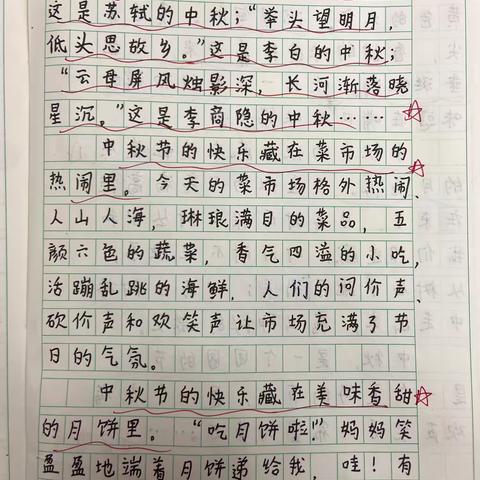 这是苏轼的中秋；“举头望明月，
低头思故乡。”这是李白的中秋；
“云母屏风烛影深，长河渐落晓
星沉。”这是李商隐的中秋……
中秋节的快乐藏在菜市场的
热闹里。今天的菜市场格外热闹、
人山人海，琳琅满目的菜品，五
颜六色的蔬菜，香气四溢的小吃，
活蹦乱跳的海鲜，人们的问价声、
砍价声和欢笑声让市场充满了节
日的气氛。
中秋节的快乐藏在美味香甜
的月饼里。“吃月饼啦！”妈妈笑
盈盈地端着月饼递给我，哇！有